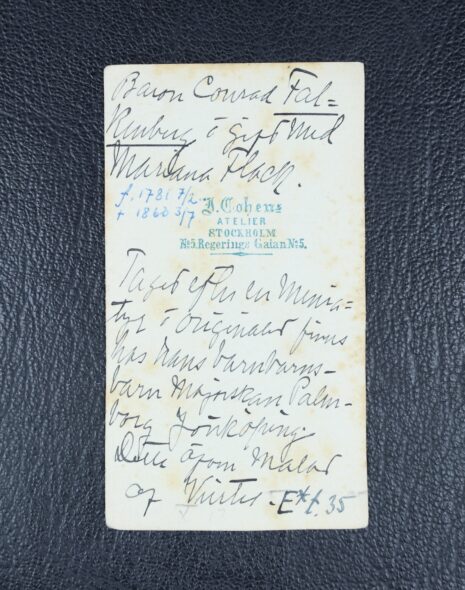 Baron Conrad Fal=
kenberg o gift med
Mariana Flach.
f. 1781 7/2
† 1860 3/7
J. Cohens
ATELIER
STOCKHOLM
No 5. Regerings Gatan No 5.
Taget efter en Minia=
tyr o originalet finns
hos hans barnbarns-
barn Majorskan Palm-
borg Jönköping
Detta är Målad
af E*t. 35